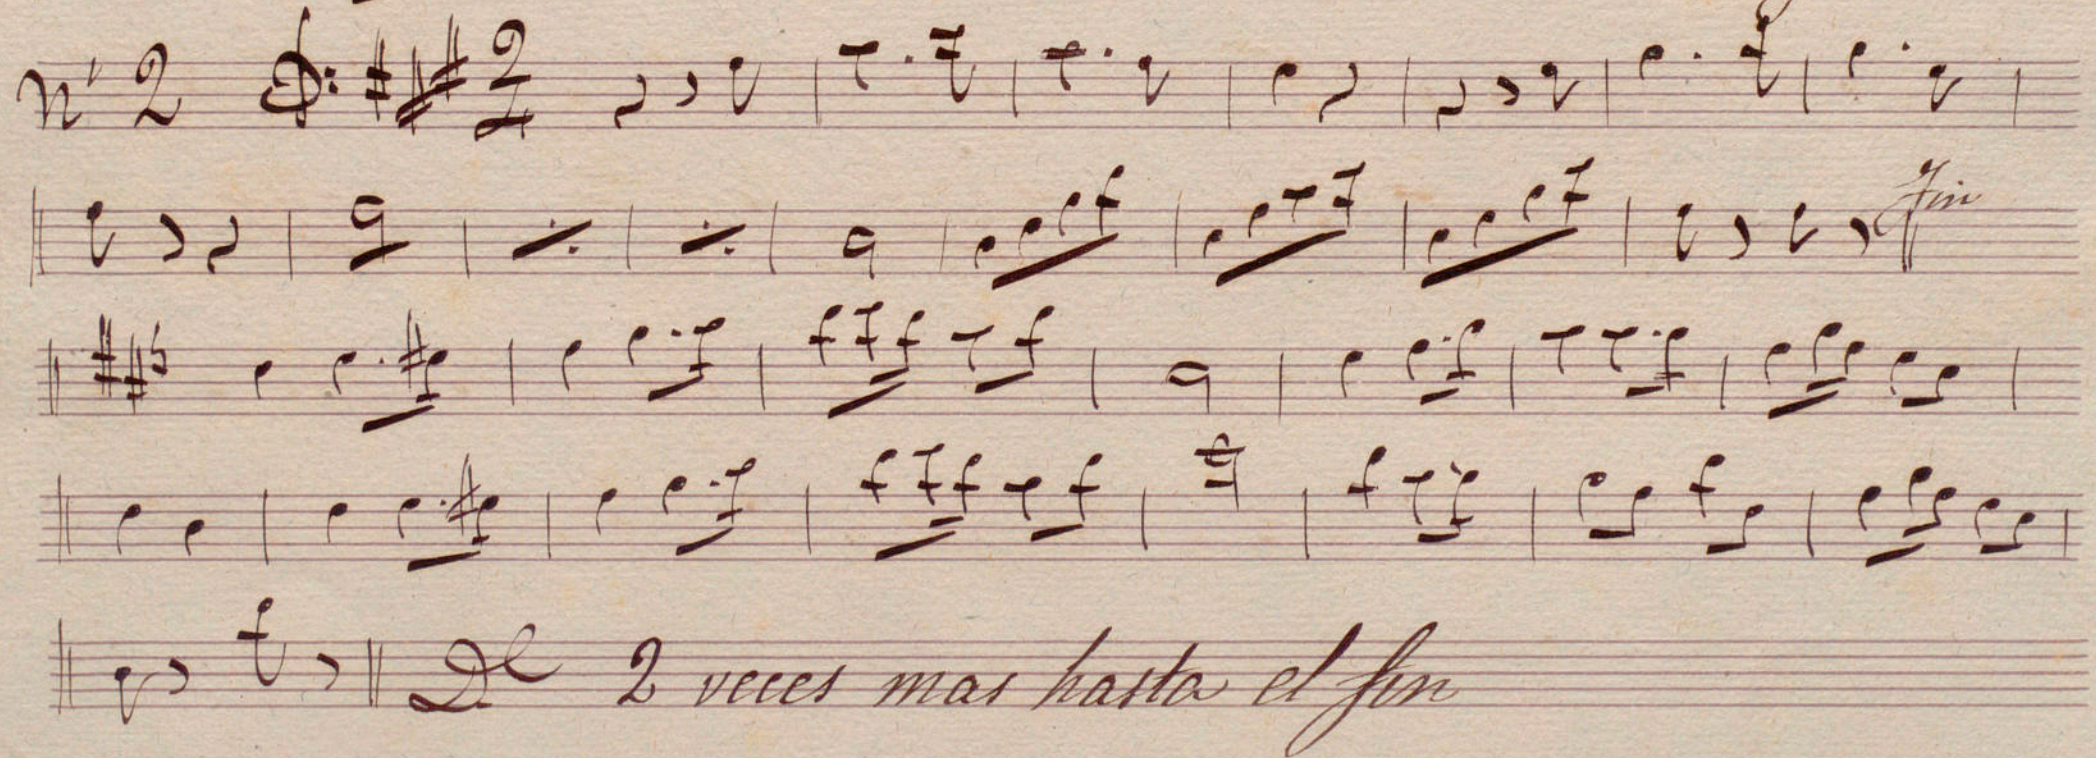 Nº 2 2/4
Fin
DC 2 veces mas hasta el fin